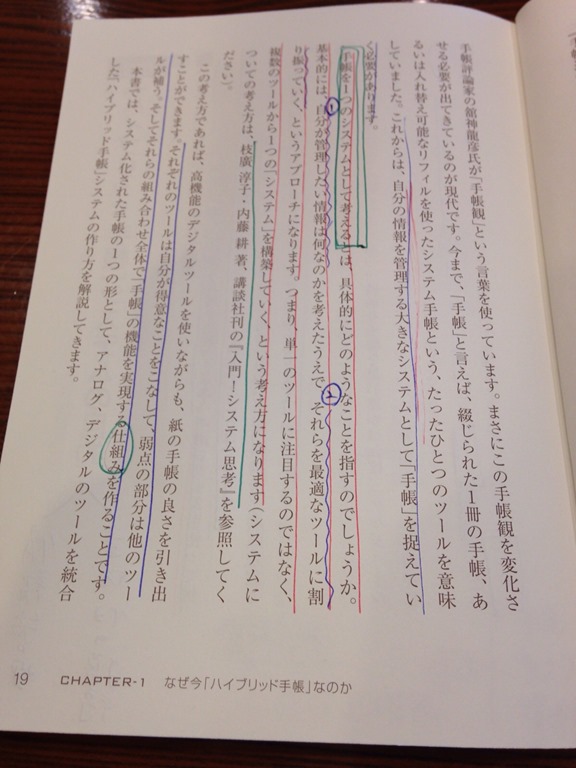 手帳評論家の舘神龍彦氏が「手帳観」という言葉を使っています。まさにこの手帳観を変化さ
せる必要が出てきているのが現代です。今まで、「手帳」と言えば、綴じられた1冊の手帳、あ
るいは入れ替え可能なリフィルを使ったシステム手帳という、たったひとつのツールを意味
していました。これからは、自分の情報を管理する大きなシステムとして「手帳」を捉えてい
く必要があります。
手帳を1つのシステムとして考えるとは、具体的にどのようなことを指すのでしょうか。
基本的には、自分が管理したい情報は何なのかを考えたうえで、それらを最適なツールに割
り振っていく、というアプローチになります。つまり、単一のツールに注目するのではなく、
複数のツールから1つの「システム」を構築していく、という考え方になります(システムに
ついての考え方は、枝廣 淳子・内藤 耕 著、講談社刊の『入門!システム思考』を参照してく
ださい)。
この考え方であれば、高機能のデジタルツールを使いながらも、紙の手帳の良さを引き出
すことができます。それぞれのツールは自分が得意なことをこなして、弱点の部分は他のツー
ルが補う。そしてそれらの組み合わせ全体で「手帳」の機能を実現する仕組みを作ることです。
本書では、システム化された手帳の1つの形として、アナログ、デジタルのツールを統合
した「ハイブリッド手帳」システムの作り方を解説してきます。
① ②
19 CHAPTER-1 なぜ今「ハイブリッド手帳」なのか